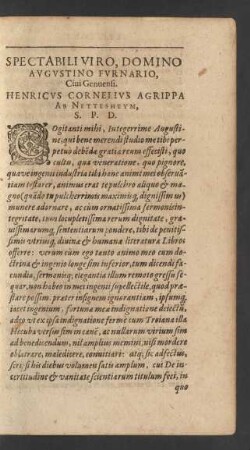 SPECTABILI VIRO, DOMINO
AVGVSTINO FVRNARIO,
Ciui Genuensi.
HENRICVS CORNELIVS AGRIPPA
AB NETTESHEYM,
S. P. D.
COgitanti mihi, Integerrime Augusti-
ne, qui bene merendi studio me tibi per-
petuò debẽdæ gratiæ reum effecisti, quo
cultu, qua veneratione, quo pignore,
quáve ingenij industria tibi hunc animi mei obseruã
tiam testarer, animus erat te pulchro aliquo & ma-
gno (quãdo tu pulcherrimis maximisq; dignissim')
munere adornare, acciam ornatissima sermonis
tegritate, tum locupletissima rerum dignitate, gra-
uissimarumq; sententiarum pondere, tibi de penitis-
simis vtriusq; diuina & humana literatura Libros
offerre: verum cum ego tanto animo meo cum do-
ctrina & ingenio longè sim inferior, tum dicendi fa-
cundia, sermonisq; elegantia illum remoto gressu se
quar, non habeo in meæ ingenij supellectile, quod præ-
stare possim præter insignem ignorantiam, ipsumq;
inest ingenium, fortuna mea indignatione deiectũ,
adeo vt ex ipsa indignatione fermè cum Troiana illa
Hecuba versus sim in canẽ, ac nullarum virium sim
ad benedicendum, nil amplius memini, nisi mordere
oblatrare, maledicere, conuitiari: atq; sic adfectus,
scripsi his diebus volumen satis amplum, cui De in-
certitudine & vanitate scientiarum titulum feci, in
quo